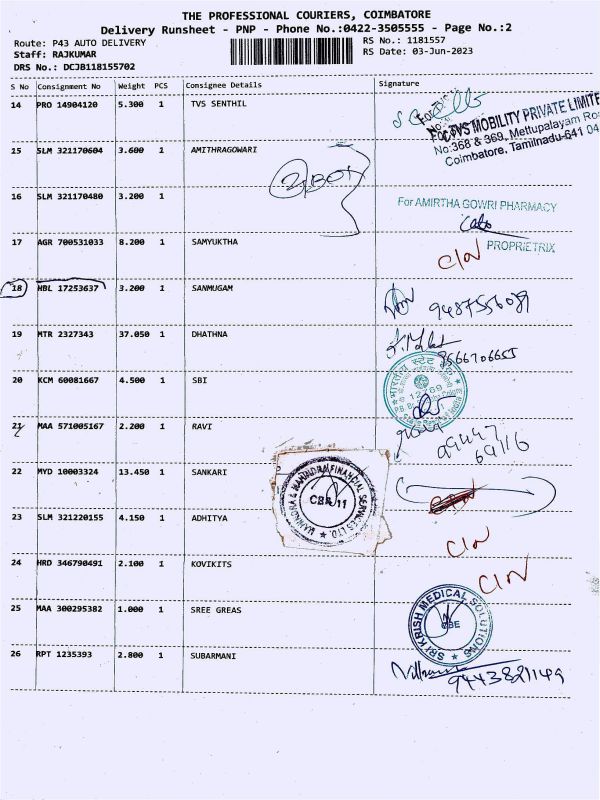 THE PROFESSIONAL COURIERS, COIMBATORE
Delivery Runsheet - PNP - Phone No.:0422-3505555 - Page No.:2
Route: P43 AUTO DELIVERY RS No.: 1181557
Staff: RAJKUMAR RS Date: 03-Jun-2023
DRS No.: DCJB118155702
S No Consignment No Weight PCS Consignee Details Signature
14 PRO 14904120 5.300 1 TVS SENTHIL
For TVS MOBILITY PRIVATE LIMITE
No:368 & 369, Mettupalayam Ro
Coimbatore, Tamilnadu-641 04
15 SLM 321170604 3.600 1 AMITHRAGOWARI
16 SLM 321170480 3.200 1
For AMIRTHA GOWRI PHARMACY
PROPRIETRIX
17 AGR 700531033 8.200 1 SAMYUKTHA
C/N
18 HBL 17253637 3.200 1 SANMUGAM
9487556089
19 MTR 2327343 37.050 1 DHATHNA
9566706655
20 KCM 60081667 4.500 1 SBI
भारतीय स्टेट बैंक
12769
State Bank of India
21 MAA 571005167 2.200 1 RAVI
99447
69116
22 MYD 10003324 13.450 1 SANKARI
MAHINDRA & MAHINDRA FINANCIAL SERVICES LTD.
CBR 11
23 SLM 321220155 4.150 1 ADHITYA
C/N
24 HRD 346790491 2.100 1 KOVIKITS
C/N
25 MAA 300295382 1.000 1 SREE GREAS
SRI KRISH MEDICAL SOLUTIONS
CBE
26 RPT 1235393 2.800 1 SUBARMANI
9443821149